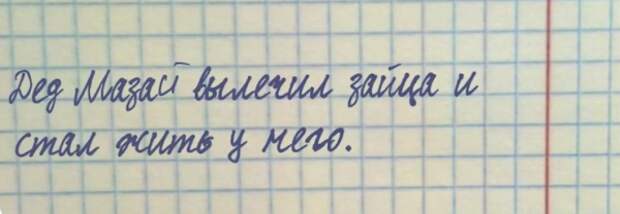 Дед Мазай вылечил зайца и
стал жить у него.